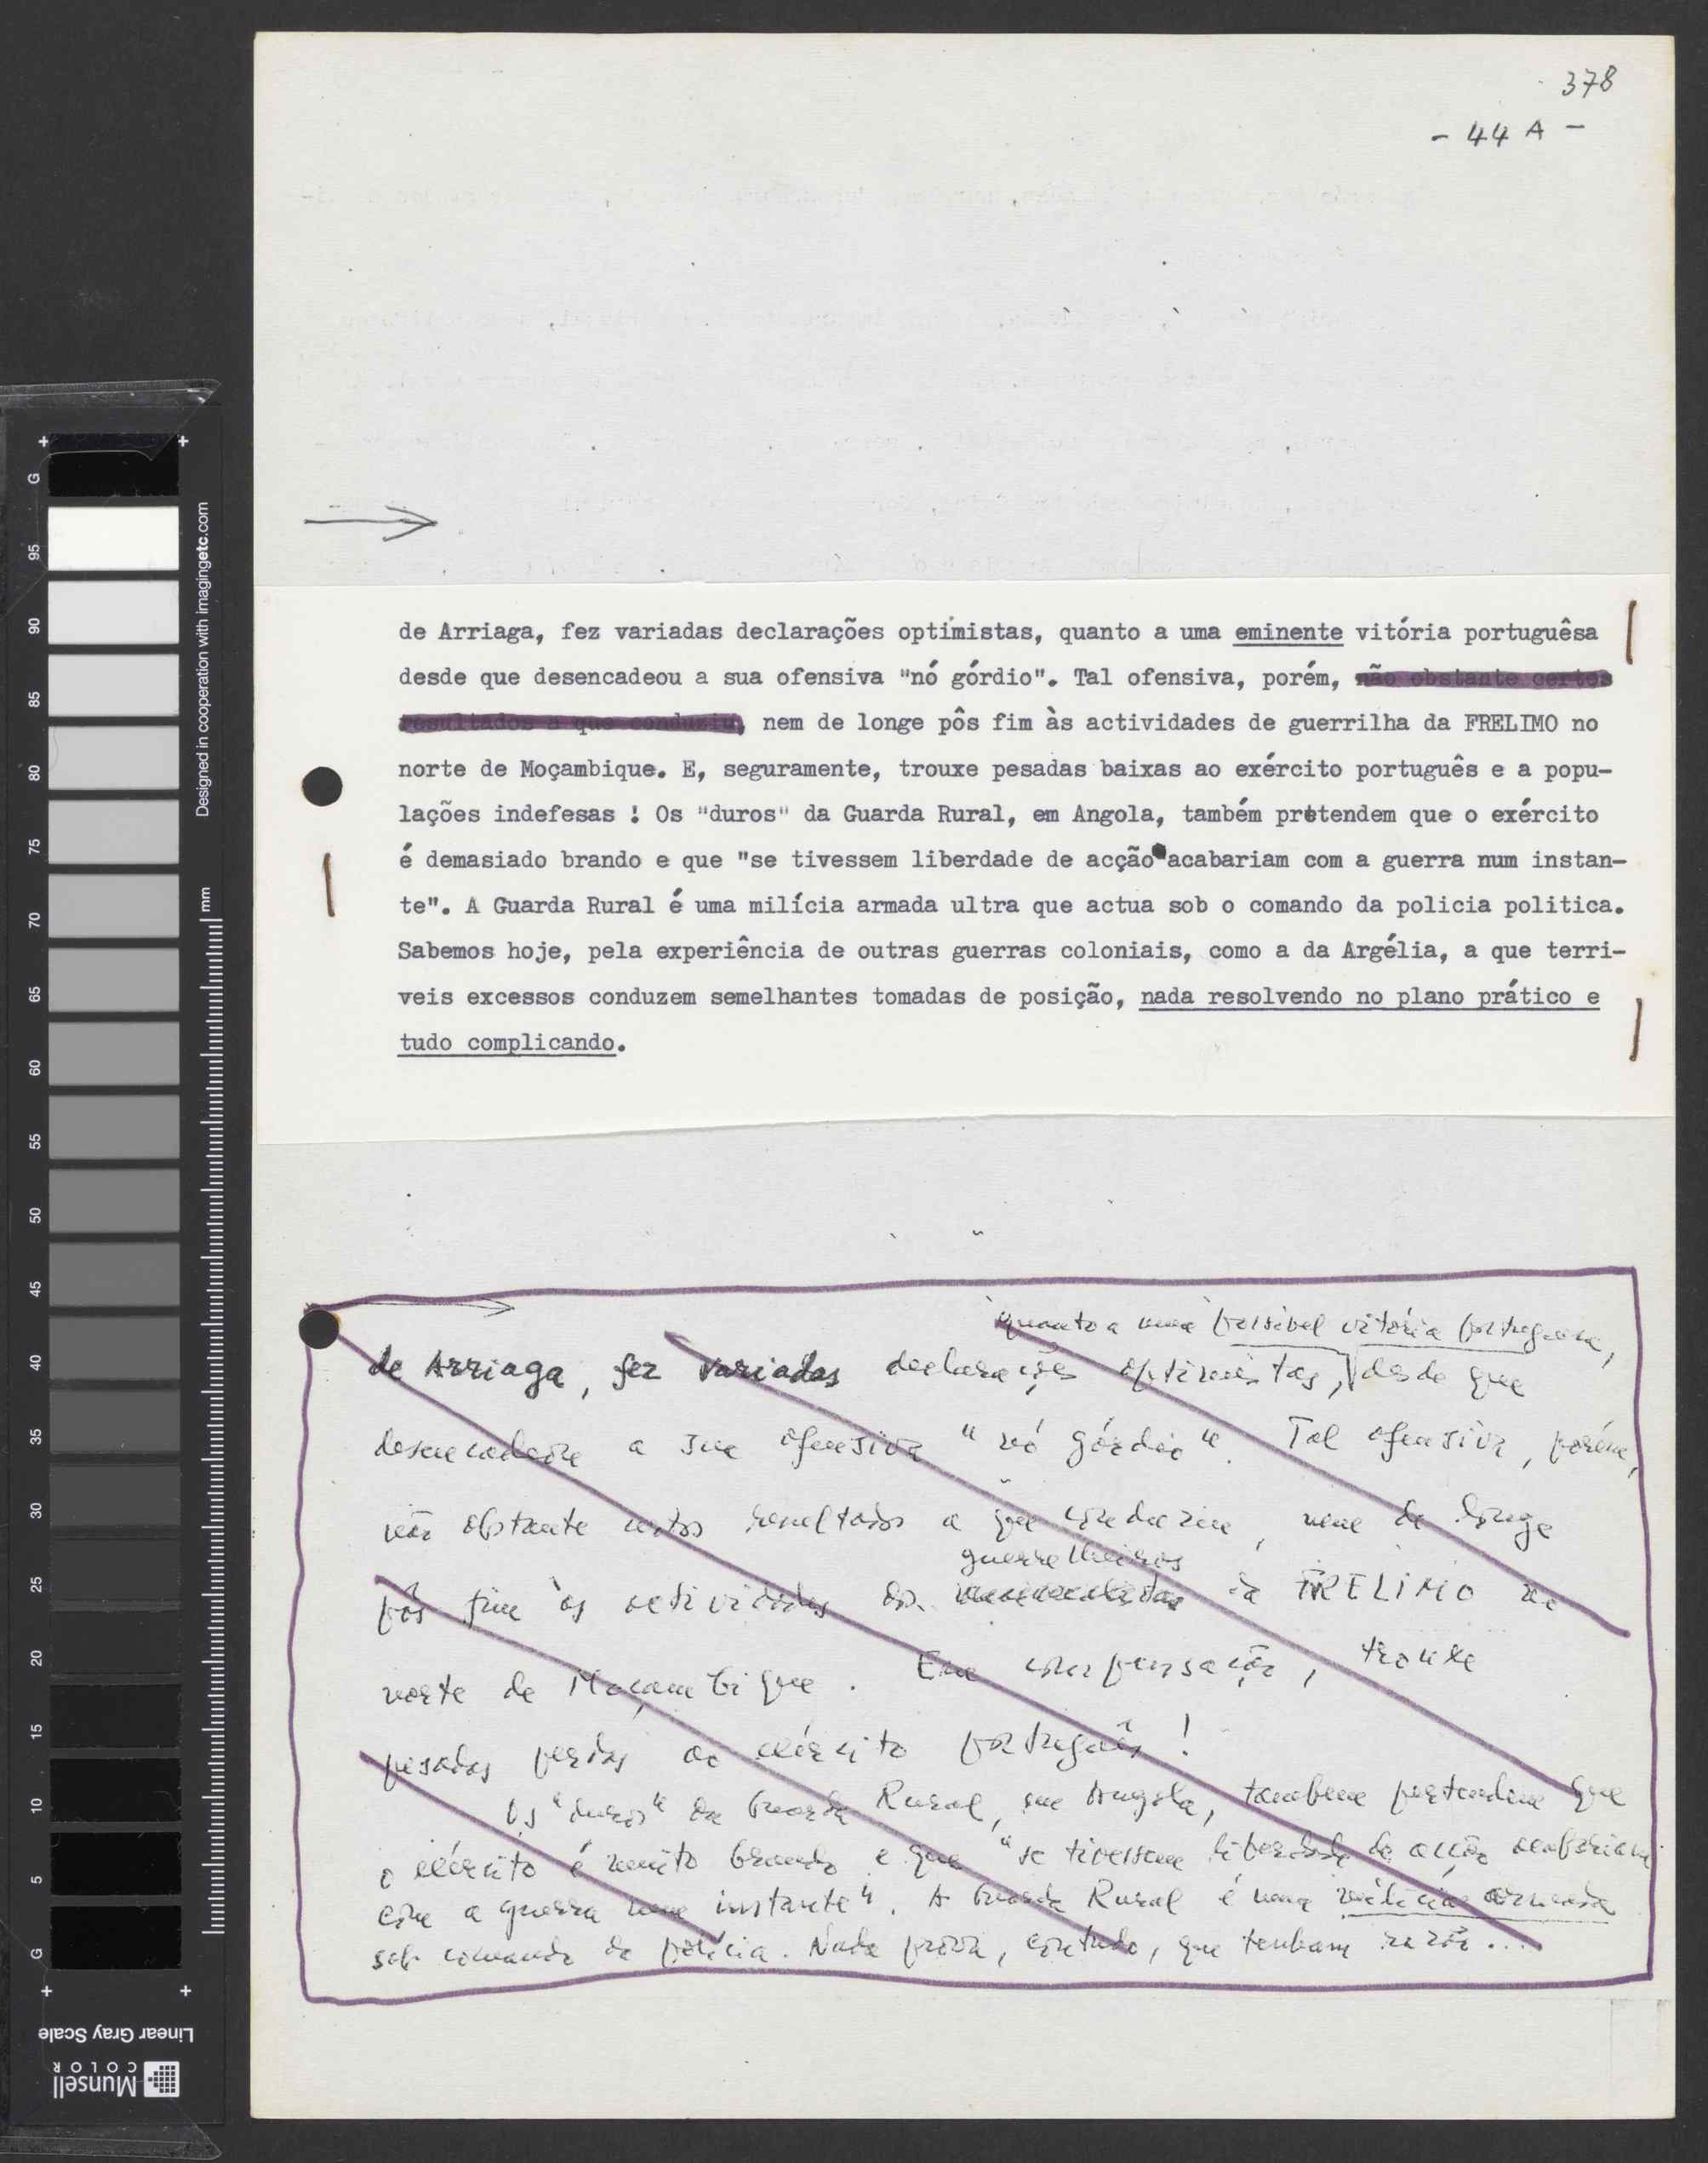 378
- 44 A -
de Arriaga, fez variadas declarações optimistas, quanto a uma eminente vitória portuguêsa
desde que desencadeou a sua ofensiva "nó górdio". Tal ofensiva, porém, não obstante certos
resultados a que conduziu, nem de longe pôs fim às actividades de guerrilha da FRELIMO no
norte de Moçambique. E, seguramente, trouxe pesadas baixas ao exército português e a popu-
lações indefesas ! Os "duros" da Guarda Rural, em Angola, também pretendem que o exército
é demasiado brando e que "se tivessem liberdade de acção acabariam com a guerra num instan-
te". A Guarda Rural é uma milícia armada ultra que actua sob o comando da policia politica.
Sabemos hoje, pela experiência de outras guerras coloniais, como a da Argélia, a que terri-
veis excessos conduzem semelhantes tomadas de posição, nada resolvendo no plano prático e
tudo complicando.
quanto a uma possivel vitória portuguesa,
de Arriaga, fez variadas declarações optimistas, desde que
desencadeou a sua ofensiva "nó górdio". Tal ofensiva, porém,
não obstante certos resultados a que conduziu, nem de longe
guerrilheiros
pôs fim às actividades dos da FRELIMO no
norte de Moçambique. Em compensação, trouxe
pesadas perdas ao exército português!
Os "duros" da Guarda Rural, em Angola, tambem pretendem que
o exército é muito brando e que "se tivessem liberdade de acção acabariam
com a guerra num instante". A Guarda Rural é uma milícia armada
sob comando da polícia. Nada prova, contudo, que tenham razão....
G
95
90
85
80
75
70
65
60
55
50
45
40
35
30
25
20
15
10
5
G
mm
Designed in cooperation with imagingetc.com
Linear Gray Scale
Munsell
COLOR